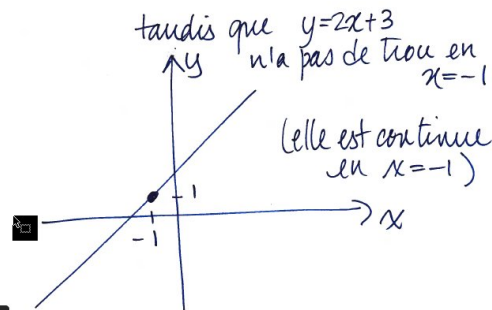 tandis que y=2x+3
n'a pas de trou en
x=-1
y
(elle est continue
en x=-1)
1
x
-1